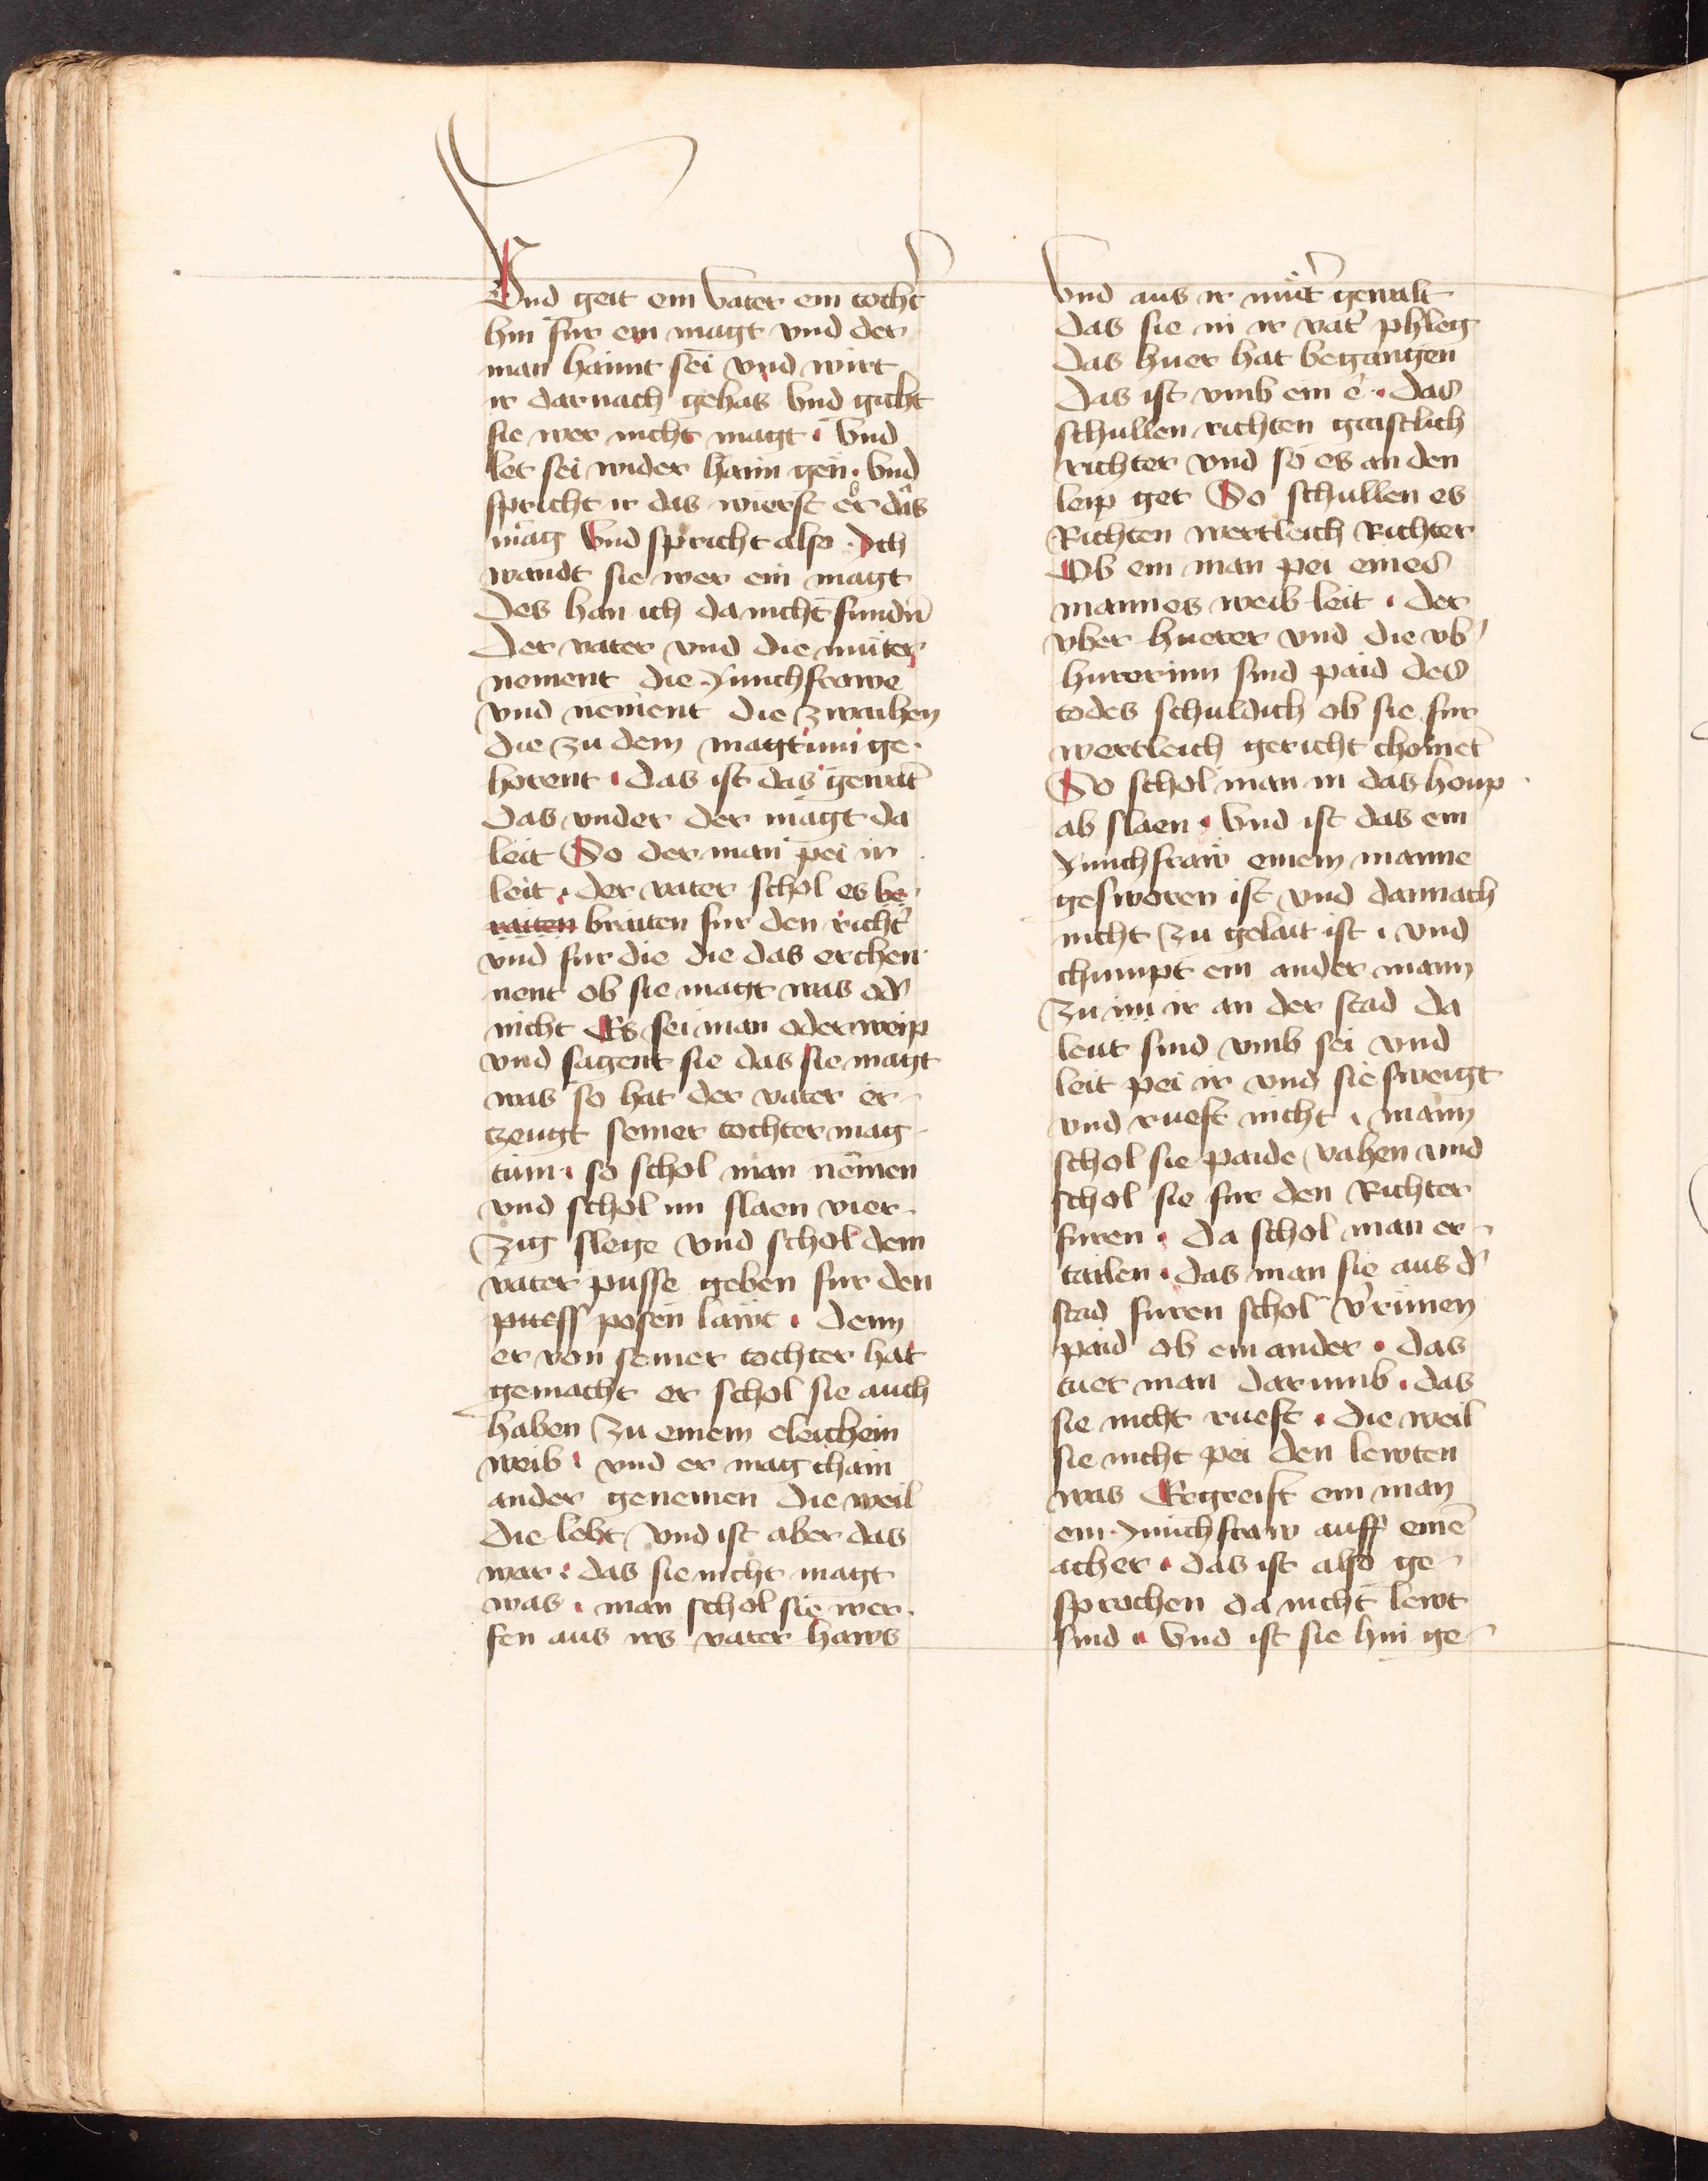 Vnd geit ein vater ein tocht̾
hin fur ein magt vnd der
man haimt sei vnd wirt
ir darnach gehas vnd gicht
sie wer nicht magt · vnd
let sei wider haim gen · vnd
spricht ir das wierst er das
mag Vnd spricht also · Ich
wandt sie wer ein magt
des han ich da nicht fundn̄
Der vater vnd die muter
nement die Junchfrawe
vnd nement die zwaihen
die zu dem magtum ge-
horent · das ist das gewāt
das vnder der magt da
leit So der man pei ir
leit · der vater schol es be
raiten braiten fur den richt̾
vnd fur die die das erchen
nent ob sie magt was od̾
nicht Es sei man oder weip
vnd sagent sie das sie magt
was so hat der vater er-
tzeugt seiner tochter mag-
tum · so schol man nemen
vnd schol im slaen vier-
zig slege vnd schol dem
vater pusse geben fur den
puess posen lawt · denn
er von seiner tochter hat
gemacht er schol sie auch
haben zu einem eleichein
weib · vnd er mag chain
ander genemen die weil
die lebt vnd ist aber das
war · das sie nicht magt
was · man schol sie wer-
fen aus irs vater haws
vnd aus ir mūt̾ gewalt
das sie in ir vat̾ phleg
das huer hat begangen
Das ist vmb ein e · das
schullen richten gaistlich
richter vnd so es an den
leip get So schullen es
Richten wertleich Richter
Ob ein man pei eines
mannes weib leit · der
vber huerer vnd die vb̾
hurerinn sind paid des
todes schuldich ob sie fur
wertleich gericht chomet
So schol man in das houp
ab slaen · vnd ist das ein
Junchfraw einem manne
gesworen ist vnd dannach
nicht zu gelait ist · vnd
chumpt ein ander mann
zu im ir an der stad da
leut sind vmb sei vnd
leit pei ir vnd sie sweigt
vnd rueft nicht · mann
schol sie paide vahen vnd
schol sie fur den Richter
furen · da schol man er-
tailen · das man sie aus d̾
stad furen schol v̾rimen
paid ob ein ander · das
tuet man darumb · das
sie nicht rueft · die weil
sie nicht pei den lewten
was Begreift ein man
ein Junchfraw auff einē
acher · das ist also ge-
sprochen da nicht lewt
sind · Vnd ist sie hin ge-